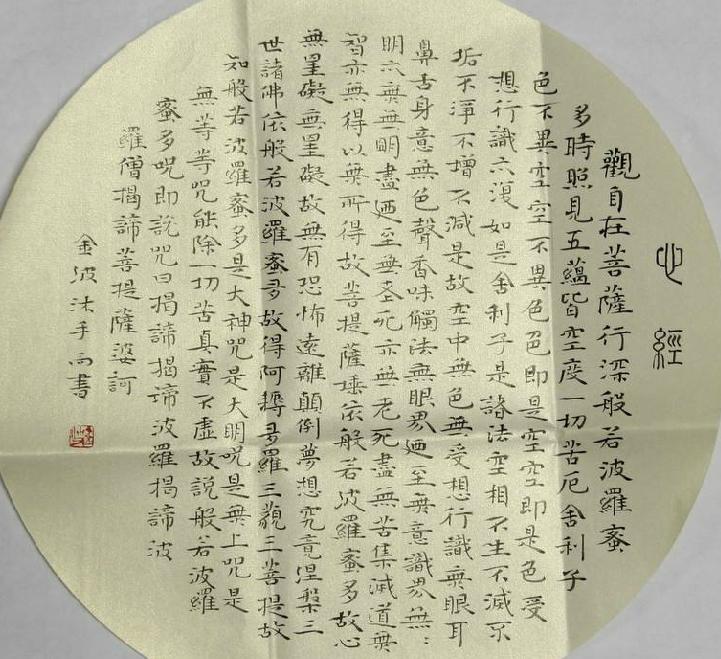 心經
觀自在菩薩行深般若波羅蜜
多時照見五蘊皆空度一切苦厄舍利子
色不異空空不異色色即是空空即是色受
想行識亦復如是舍利子是諸法空相不生不滅不
垢不淨不增不減是故空中無色無受想行識無眼耳
鼻舌身意無色聲香味觸法無眼界廼至無意識界無
明亦無無明盡廼至無老死亦無老死盡無苦集滅道無
智亦無得以無所得故菩提薩埵依般若波羅蜜多故心
無罣礙無罣礙故無有恐怖遠離顛倒夢想究竟涅槃三
世諸佛依般若波羅蜜多故得阿耨多羅三藐三菩提故
知般若波羅蜜多是大神咒是大明咒是無上咒是
無等等咒能除一切苦真實不虛故說般若波羅
蜜多咒即說咒曰揭諦揭諦波羅揭諦波
羅僧揭諦菩提薩婆訶
金波沐手書